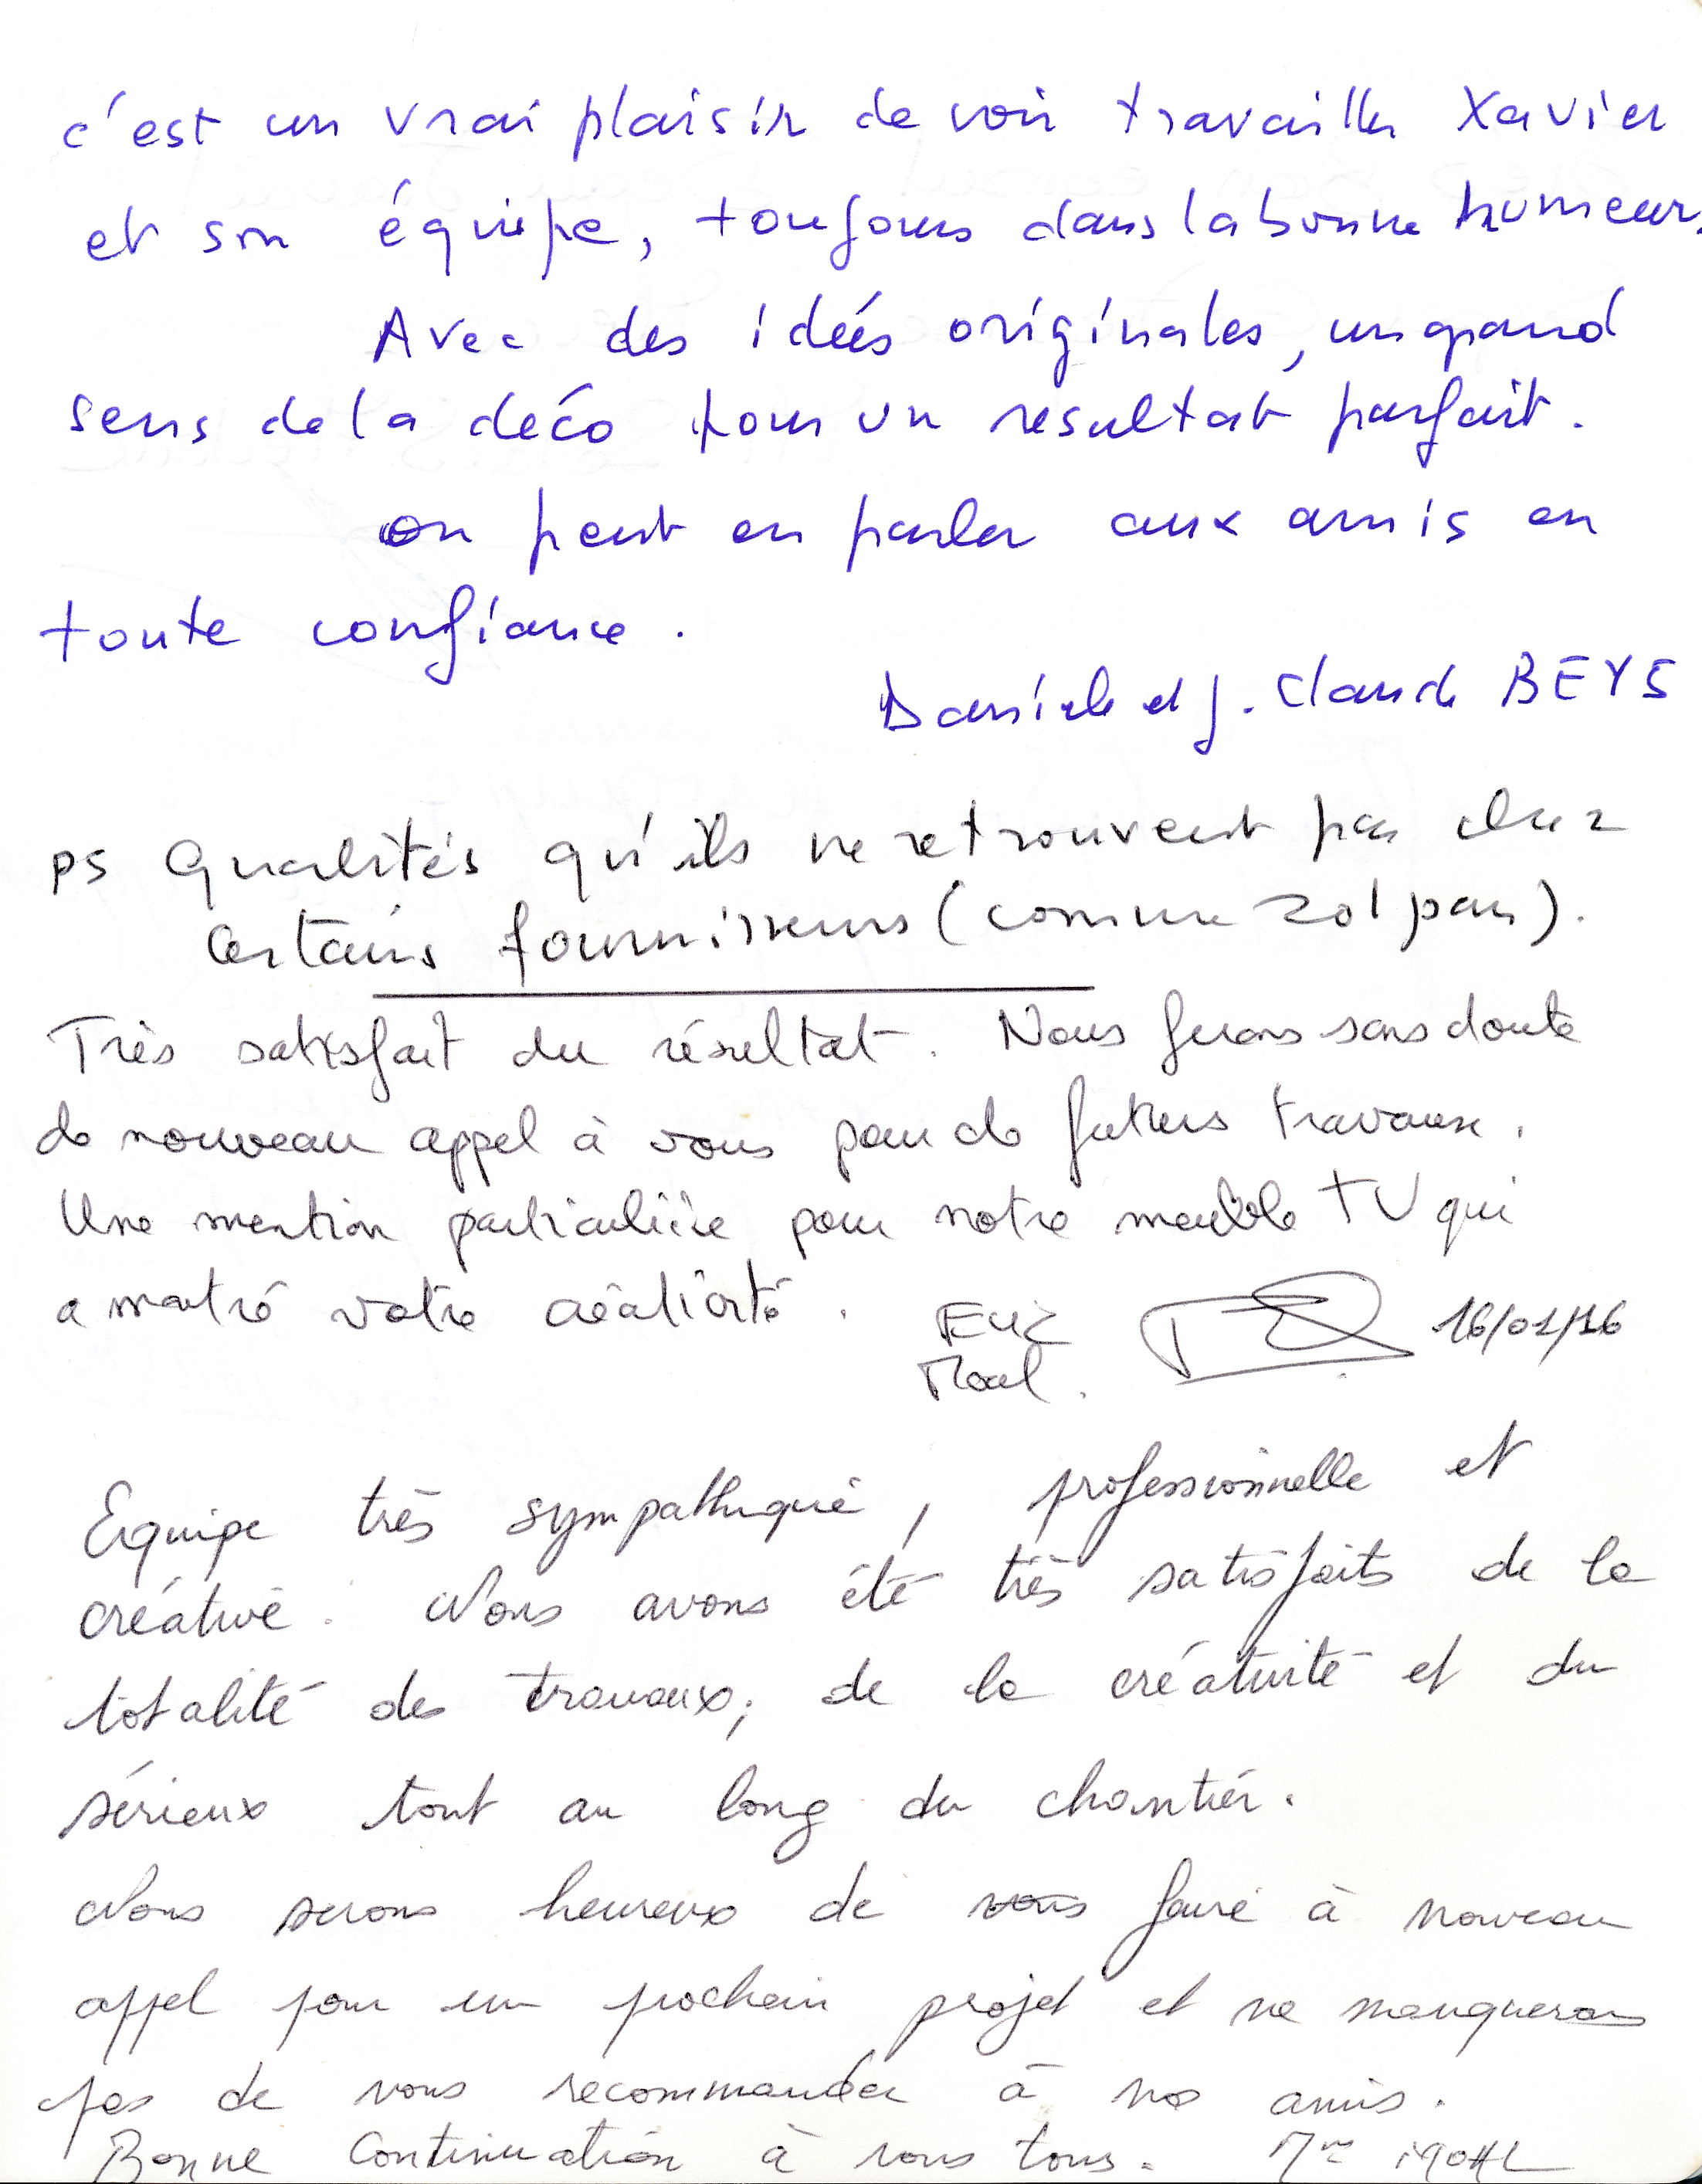 c'est un vrai plaisir de voir travailler Xavier
et son équipe, toujours dans la bonne humeur.
Avec des idées originales, un grand
sens de la déco pour un resultat parfait.
on peut en parler aux amis en
toute confiance.
Danièle et J. Claude BEYS
ps Qualités qu'ils ne retrouvent pas chez
certains fournisseurs (comme zolpan).
Très satisfait du résultat. Nous ferons sans doute
de nouveau appel à vous pour de futurs travaux.
Une mention particulière pour notre meuble TV qui
a montré votre créativité.
Eric 16/01/16
Equipe très sympathique, professionnelle et
créative. Nous avons été très satisfaits de la
totalité des travaux, de la créativité et du
sérieux tout au long du chantier.
Nous serons heureux de vous faire à nouveau
appel pour un prochain projet et ne manquerons
pas de vous recommander à nos amis.
Bonne Continuation à vous tous. Mme